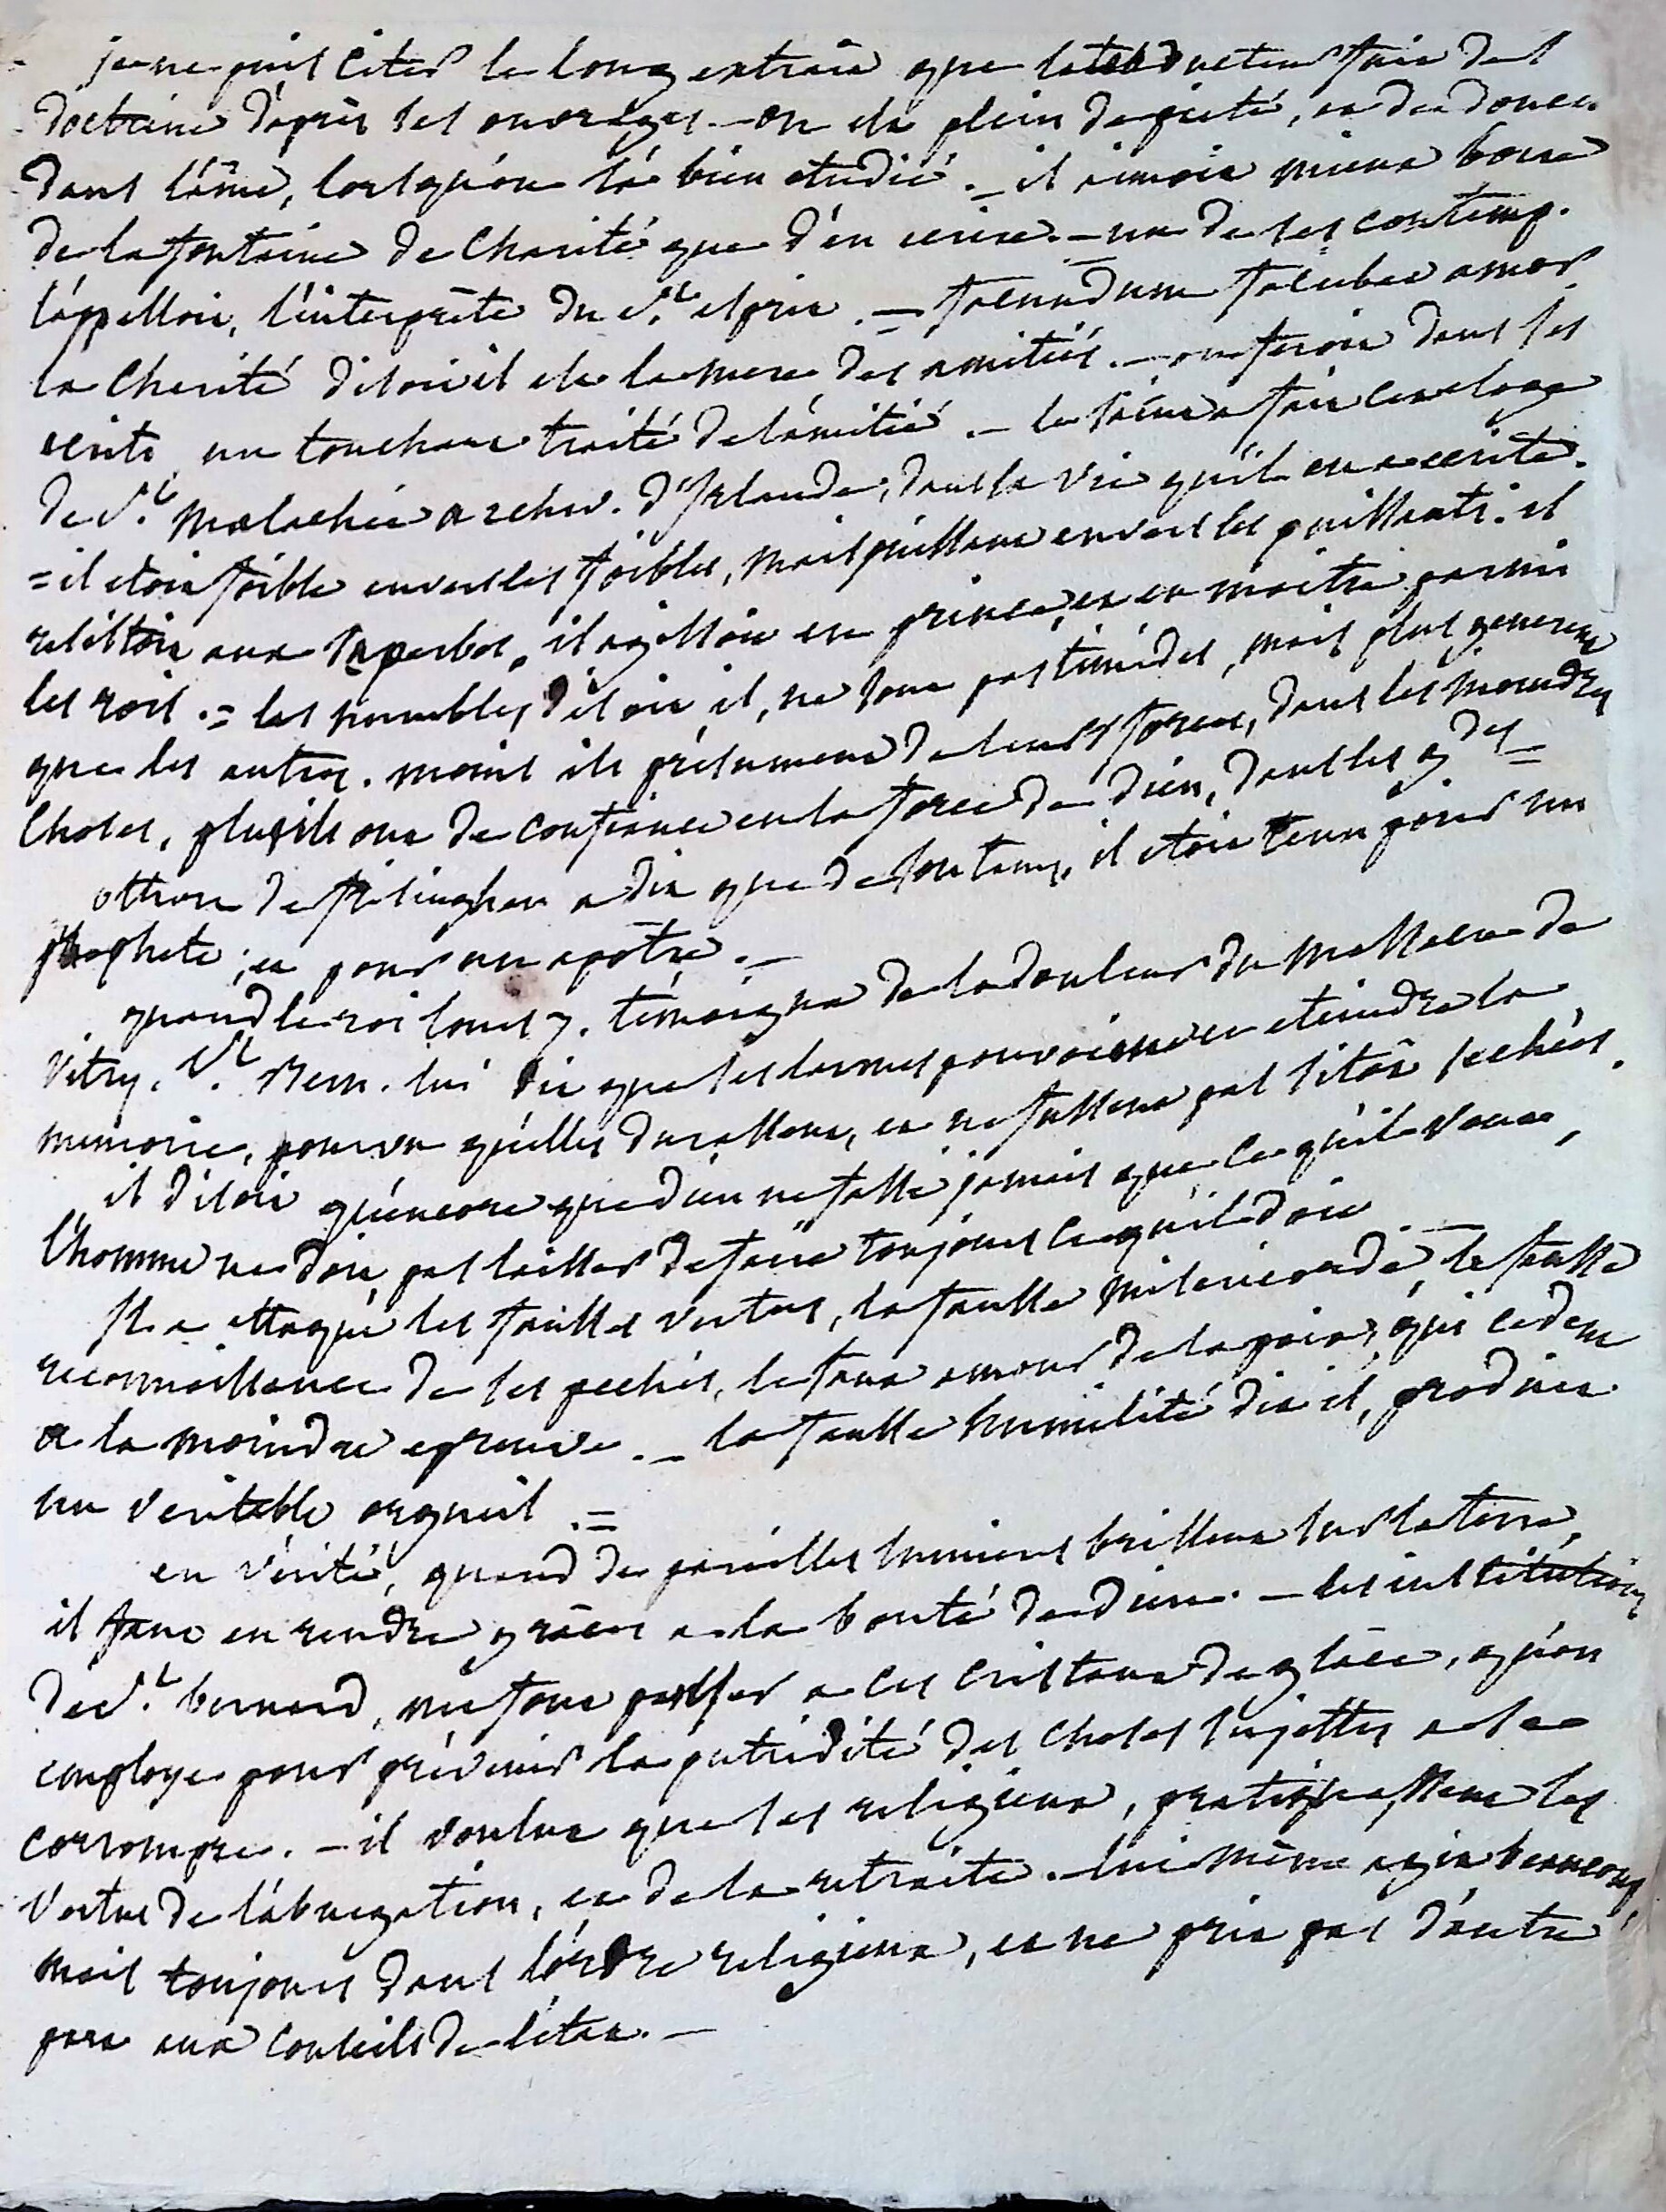 je ne puis citer le long extrait que le traducteur fait de sa
doctrine d'après ses ouvrages. — on est plein de piété, et de douceur
dans l'âme, lorsqu'on l'a bien etudié. — il aimoit mieux boire
de la fontaine de charité que d'en ecrire. — un de ses contemp.
l'appelloit, l'interprête du St esprit. — facundum faciebat amor,
la charité disoit il est la mere des amitiés. — on feroit dans ses
ecrits un touchant traité de l'amitié. — le saint a fait cet eloge
de St Malachie archev. d'Irlande, dans la vie qu'il en a ecrite.
= il etoit foible envers les foibles, mais puissant envers les puissants. il
resistoit aux superbes, il agissoit en prince, et en maitre parmi
les rois. = les humbles, disoit il, ne sont pas timides, mais plus genereux
que les autres. moins ils présument de leurs forces, dans les moindres
choses, plus ils ont de confiance en la force de dieu, dans les gdes =
otton de frisinghen a dit que de son tems, il etoit tenu pour un
prophete, et pour un apôtre. —
quand le roi louis 7. témoigna de la douleur du massacre de
Vitry, St Bern. lui dit que ses larmes pouvoient en eteindre la
memoire, pourvu qu'elles durassent, et ne fussent pas sitôt sechées.
il disoit qu'encore que dieu ne fasse jamais que ce qu'il veut,
l'homme ne doit pas laisser de faire toujours ce qu'il doit. —
Il a attaqué les fausses vertus, la fausse misericorde, la fausse
reconnaissance de ses pechés, le faux amour de la paix, qui cedent
a la moindre epreuve. — la fausse humilité dit il, produit
un veritable orgueil. =
en vérité, quand de pareilles lumieres brillent sur la terre,
il faut en rendre grâces a la bonté de dieu. — les institutions
de St bernard, me font penser a ces cristaux de glace, qu'on
employe pour prévenir la putridité des choses sujettes a se
corrompre. — il voulut que ses religieux, pratiquassent les
vertus de l'abnegation, et de la retraite. — lui même agit beaucoup,
mais toujours dans l'ordre religieux, et ne prit pas d'autre
part aux conseils de l'etat. —